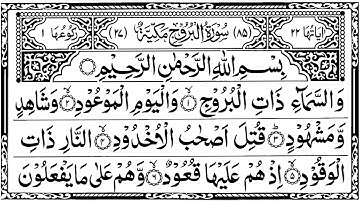 اٰیَاتُهَا ٢٢ (٨٥) سُوْرَةُ الْبُرُوْجِ مَكِّیَّةٌ (٢٧) رُكُوْعُهَا ١
بِسْمِ اللّٰهِ الرَّحْمٰنِ الرَّحِیْمِ
وَالسَّمَآءِ ذَاتِ الْبُرُوْجِ ۙ﴿١﴾ وَالْیَوْمِ الْمَوْعُوْدِ ۙ﴿٢﴾ وَشَاهِدٍ
وَّمَشْهُوْدٍ ؕ﴿٣﴾ قُتِلَ اَصْحٰبُ الْاُخْدُوْدِ ۙ﴿٤﴾ النَّارِ ذَاتِ
الْوَقُوْدِ ۙ﴿٥﴾ اِذْ هُمْ عَلَیْهَا قُعُوْدٌ ۙ﴿٦﴾ وَّهُمْ عَلٰی مَا یَفْعَلُوْنَ